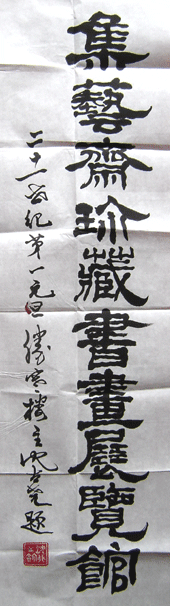 集藝齋珍藏書畫展覽館
二十一世紀第一元旦勝寒樓主沈定菴題